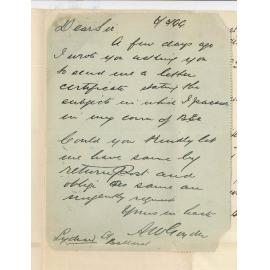 Dear Sir
A few days ago
I wrote you asking you
to send me a letter
certificate stating the
subjects in which I passed
in my
Could you Kindly let
me have same by
return Post and
oblige as same are
urgently required
Yours in haste